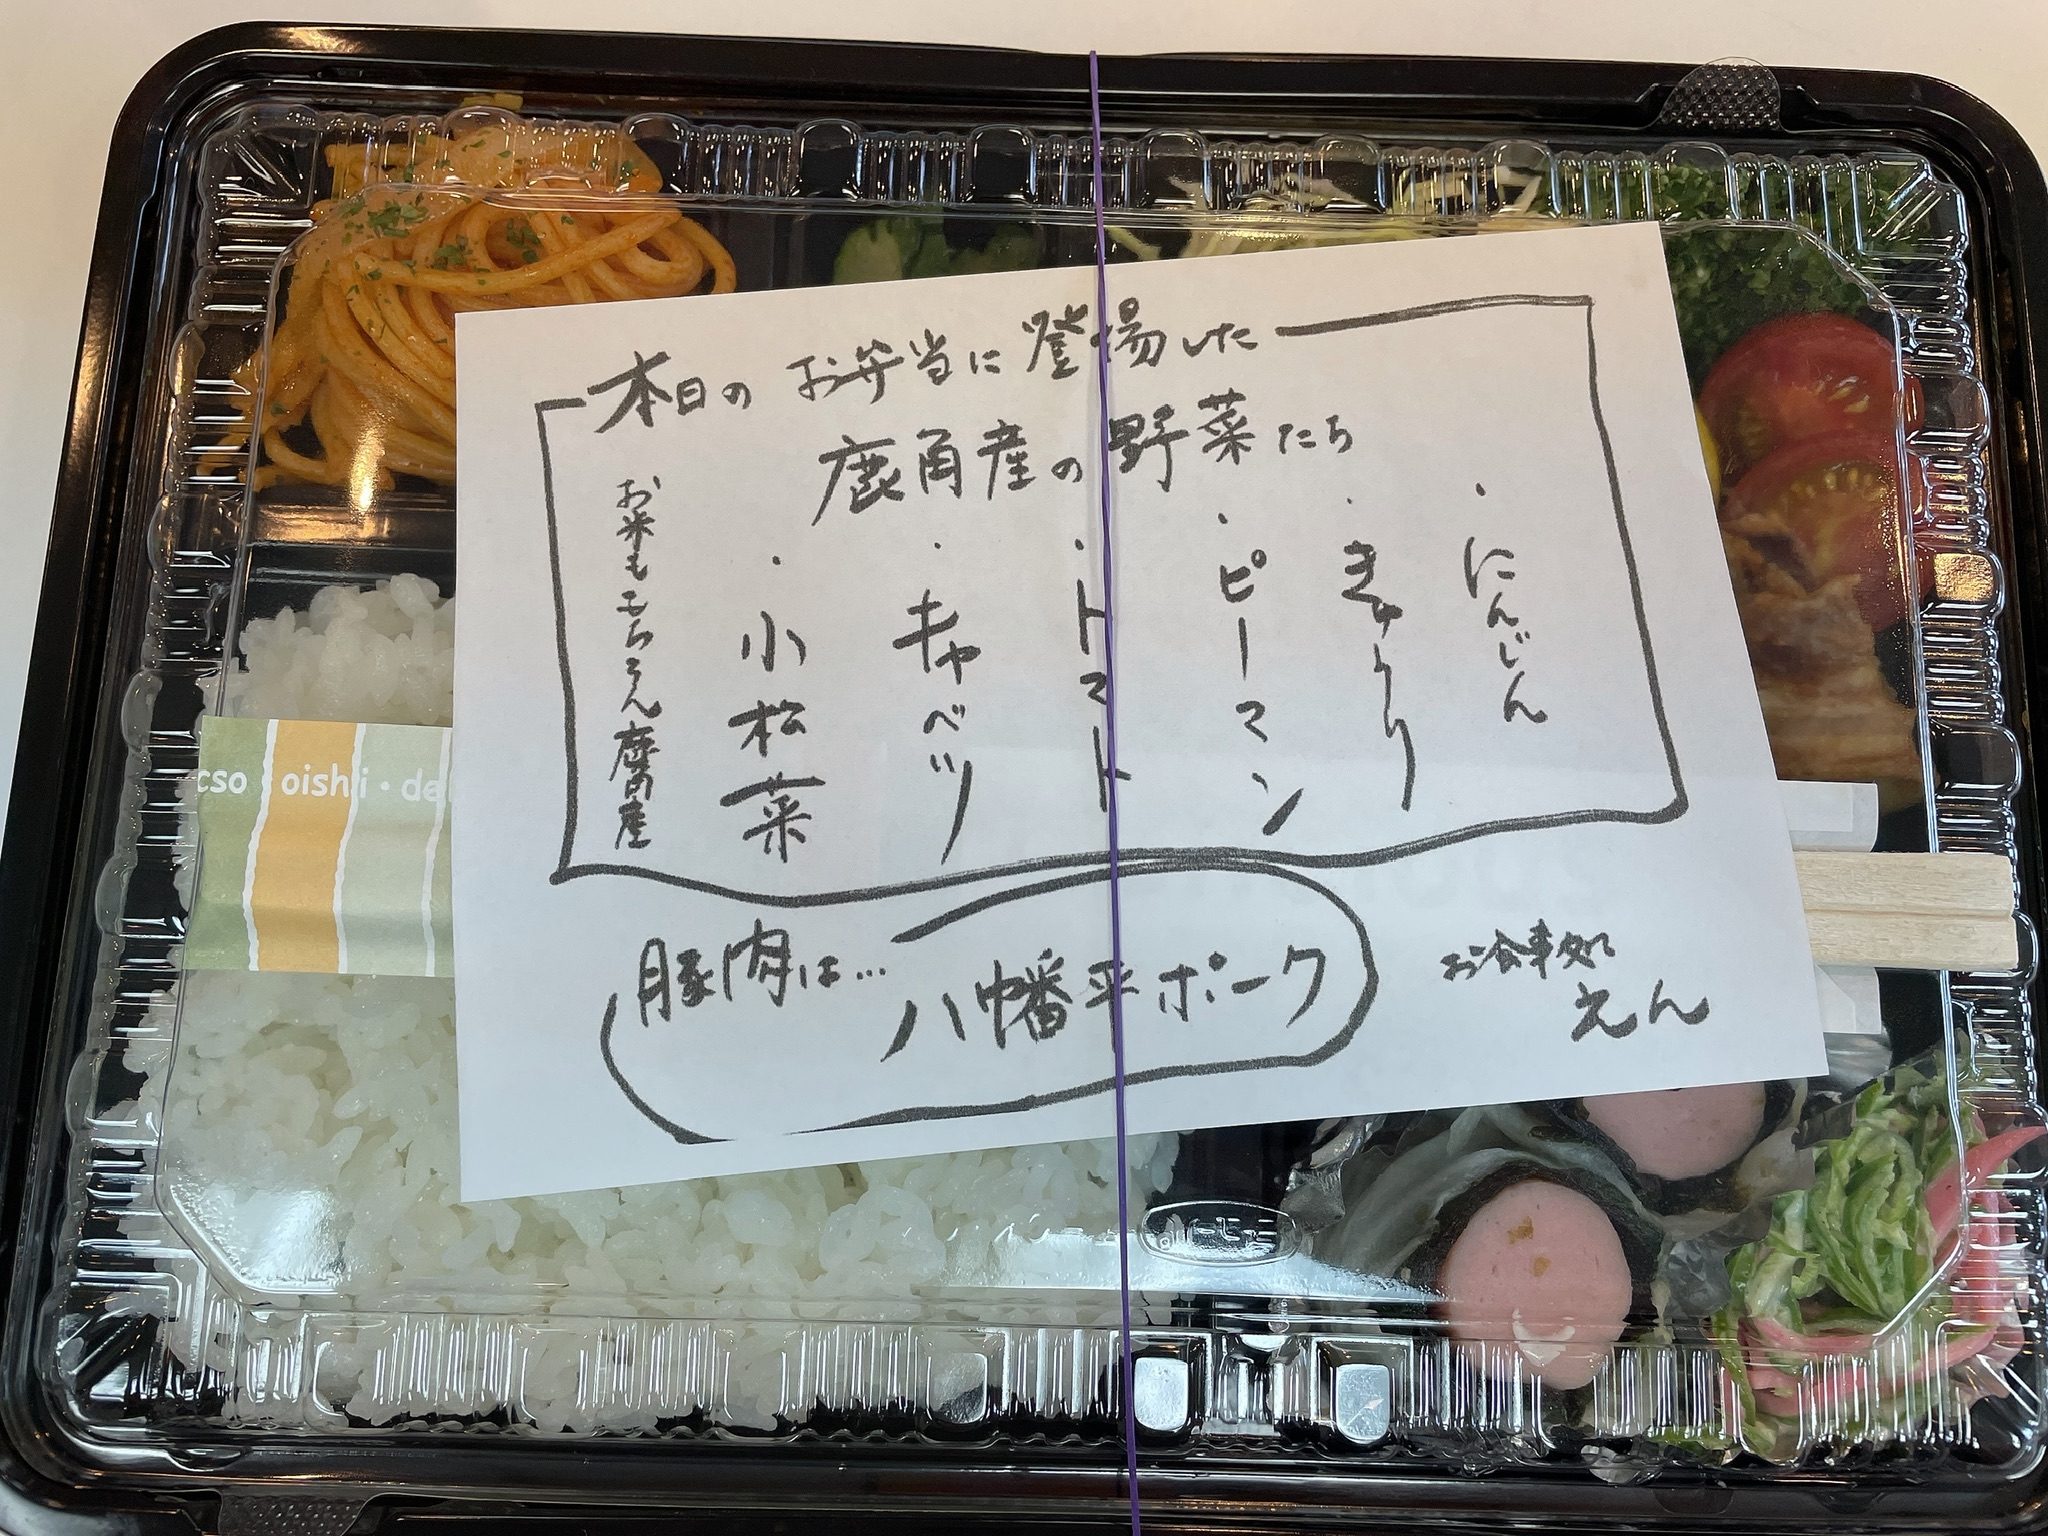 本日のお弁当に登場した
鹿角産の野菜たち
・にんじん
・きゅうり
・ピーマン
・トマト
・キャベツ
・小松菜
お米ももちろん鹿角産
豚肉は…
八幡平ポーク
お食事処
えん
cso・oishii・de